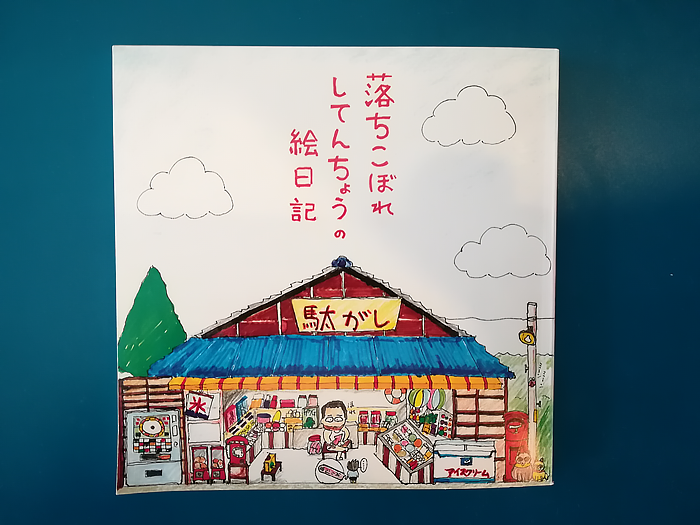 落ちこぼれ
してんちょうの
絵日記
駄がし
氷
アイスクリーム